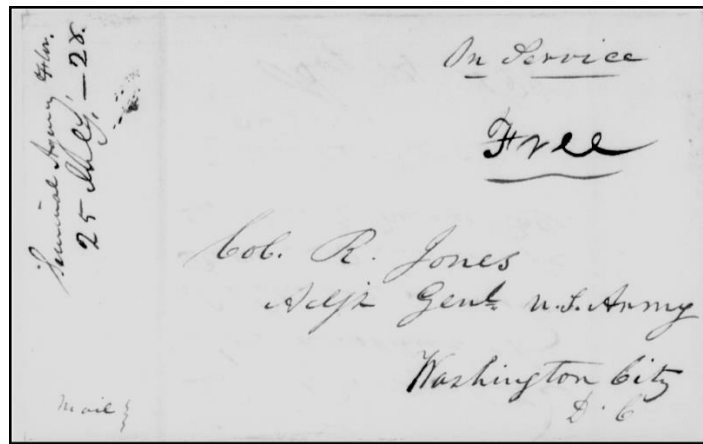 Seminole Agency Flor.
25 May, — 28.
On Service
Free
Col. R. Jones
Adjt Genl. U.S. Army
Washington City
D. C
Mail